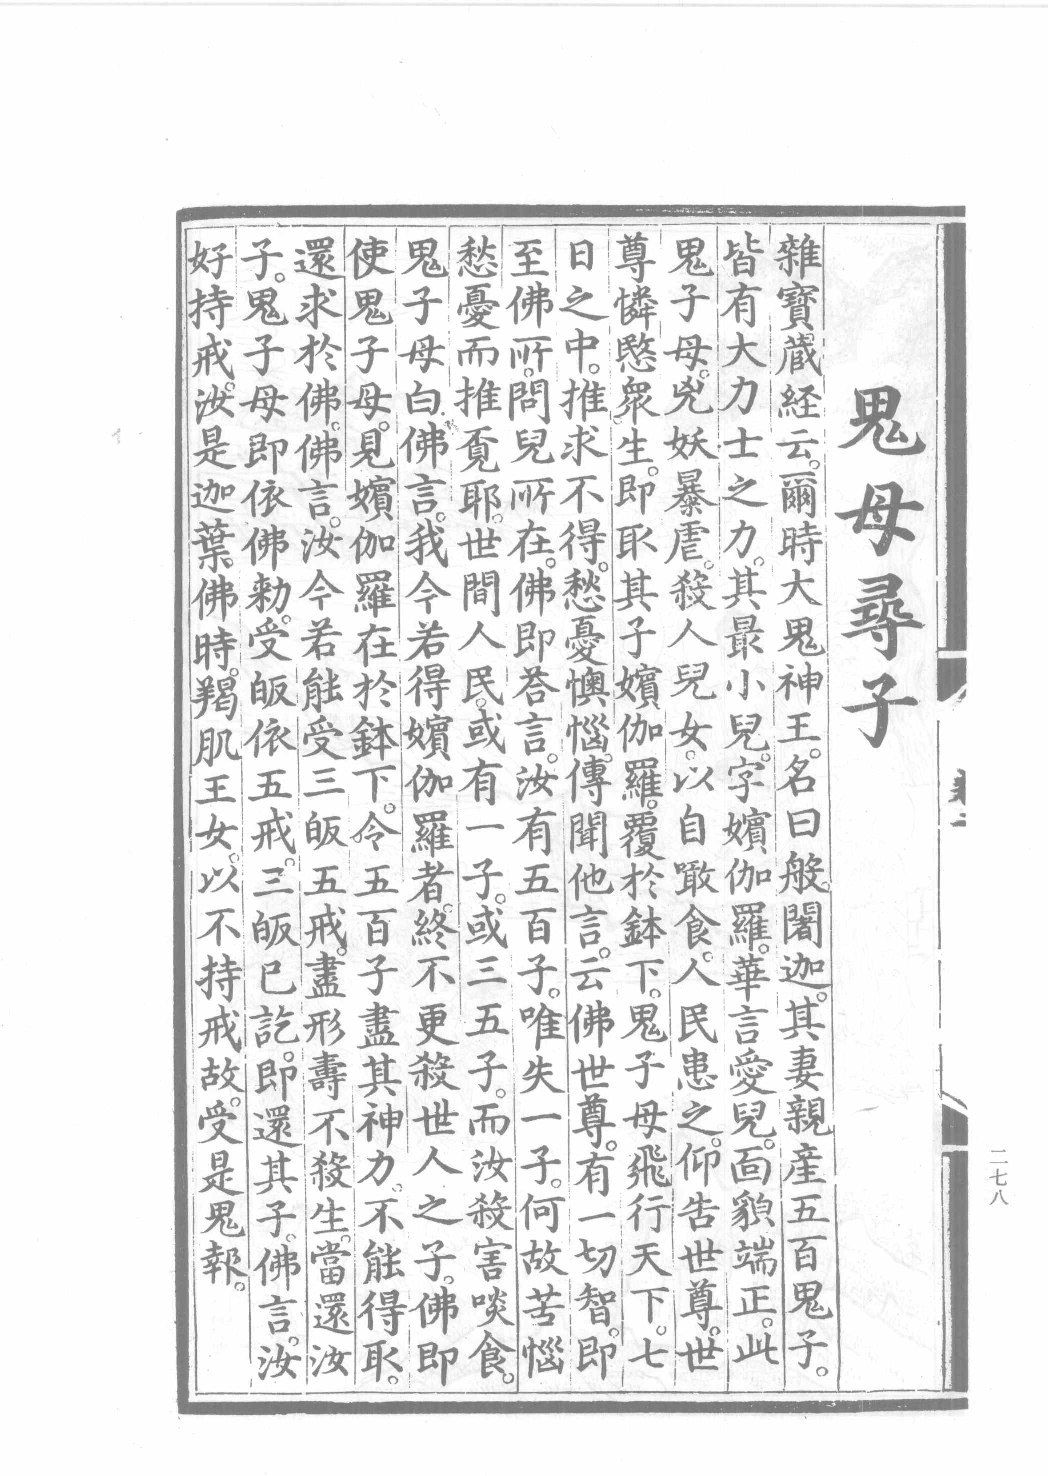 鬼母尋子
雜寶藏経云。爾時大鬼神王。名曰般闍迦。其妻親産五百鬼子。
皆有大力士之力。其最小兒。字嬪伽羅。華言愛兒。面貌端正。此
鬼子母。兇妖暴虐。殺人兒女。以自噉食。人民患之。仰告世尊。世
尊憐愍衆生。即取其子嬪伽羅。覆於鉢下。鬼子母飛行天下。七
日之中。推求不得。愁憂懊惱。傳聞他言。云佛世尊。有一切智。即
至佛所。問兒所在。佛即答言。汝有五百子。唯失一子。何故苦惱
愁憂而推覔耶。世間人民。或有一子。或三五子。而汝殺害啖食。
鬼子母白佛言。我今若得嬪伽羅者。終不更殺世人之子。佛即
使鬼子母。見嬪伽羅在於鉢下。令五百子盡其神力。不能得取。
還求於佛。佛言。汝今若能受三皈五戒。盡形壽不殺生。當還汝
子。鬼子母即依佛勅。受皈依五戒。三皈已訖。即還其子。佛言。汝
好持戒。汝是迦葉佛時。羯肌王女。以不持戒故。受是鬼報。
二七八